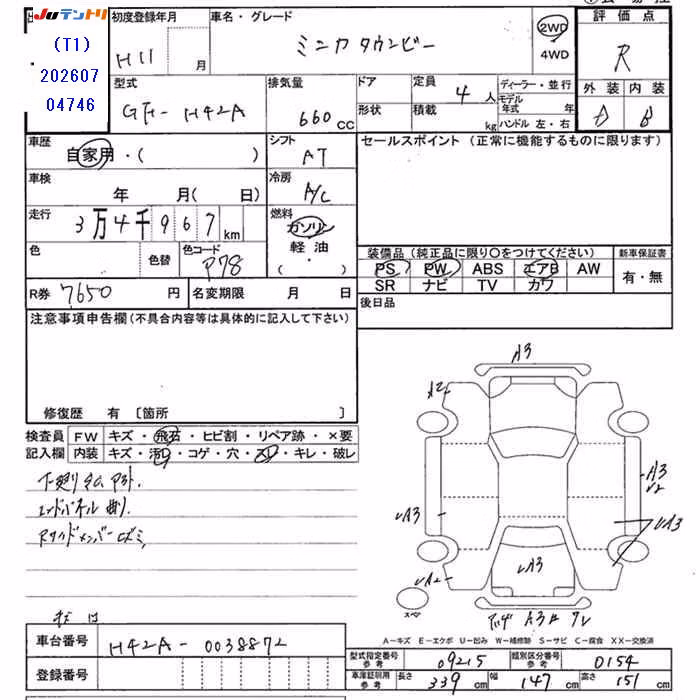 JUテントリ 初度登録年月 車名・グレード 評価点
(T1)
202607
04746
H11 月 ミニカ タウンビー 2WD 4WD R
型式 排気量 ドア 定員 4人 ディーラー・並行 外装 内装
GF-H42A 660CC 形状 積載 kg モデル年式 年 ハンドル 左・右 D B
車歴 シフト セールスポイント (正常に機能するものに限ります)
自家用・( ) AT
車検 冷房
年 月( 日) A/C
走行 燃料
3万4千967km ガソリン
色 色替 色コード 軽油
P78 ( ・ )
装備品 (純正品に限り〇をつけてください) 新車保証書
PS PW ABS エアB AW 有・無
SR ナビ TV カワ
R券 7650円 名変期限 月 日
後日品
注意事項申告欄(不具合内容等は具体的に記入して下さい)
修復歴 有 [箇所 ]
検査員 FW キズ・飛石・ヒビ割・リペア跡・×要
記入欄 内装 キズ・汚レ・コゲ・穴・スレ・キレ・破レ
下廻り
エンドパネル曲り
Rサイドメンバー
A3
A2
UA3
A3
U2
UA3
UA3
UA2
スペア
A3
A-キズ E-エクボ U-凹み W-補修跡 S-サビ C-腐食 XX-交換済
車台番号 H42A-0038872
型式指定番号 参考 09215 類別区分番号 参考 0154
登録番号
車庫証明用 参考 長さ 339cm 幅 147cm 高さ 151cm